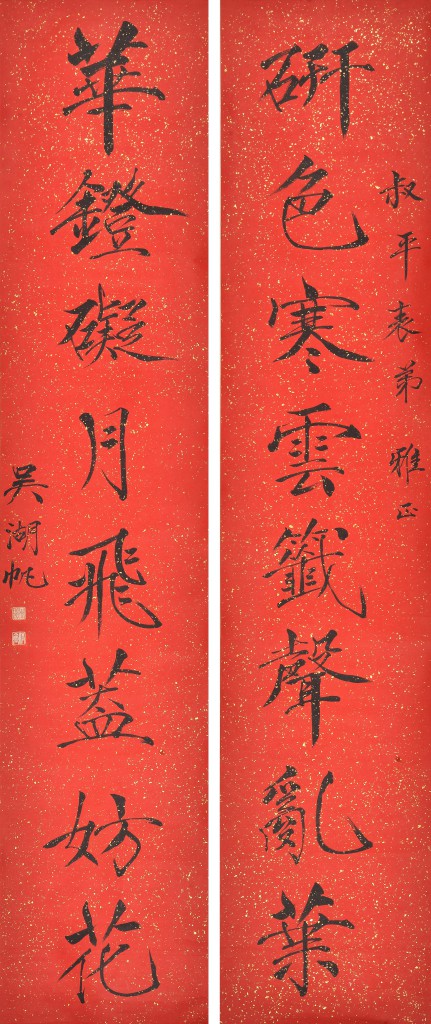 叔平表弟雅正
硏色寒雲籤聲亂葉
華鐙礙月飛蓋妨花
吳湖帆